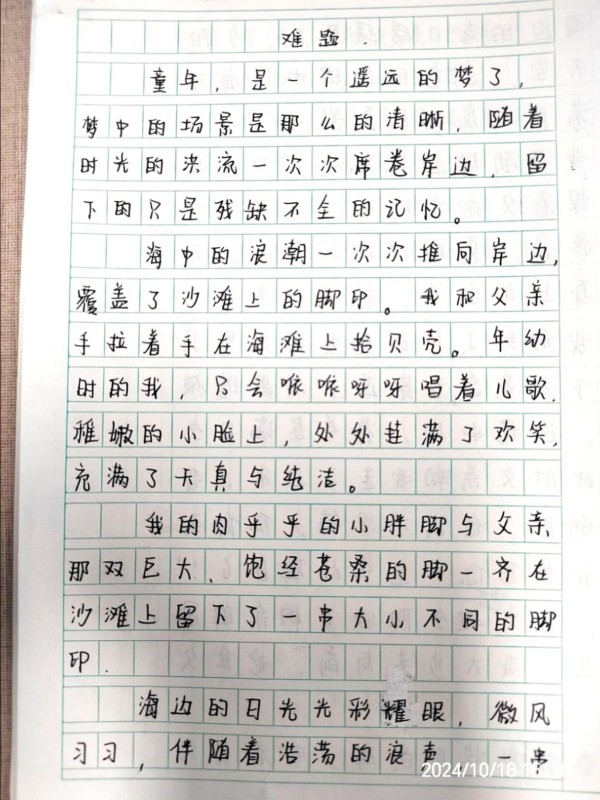 难题.
童年，是一个遥远的梦了，
梦中的场景是那么的清晰，随着
时光的洪流一次次席卷岸边，留
下的只是残缺不全的记忆。
海中的浪潮一次次推向岸边，
覆盖了沙滩上的脚印。我和父亲
手拉着手在海滩上拾贝壳。年幼
时的我，只会咿咿呀呀唱着儿歌，
稚嫩的小脸上，处处挂满了欢笑，
充满了天真与纯洁。
我的肉乎乎的小胖脚与父亲
那双巨大、饱经苍桑的脚一齐在
沙滩上留下了一串大小不同的脚
印.
海边的日光光彩耀眼，微风
习习，伴随着浩荡的浪声，一串